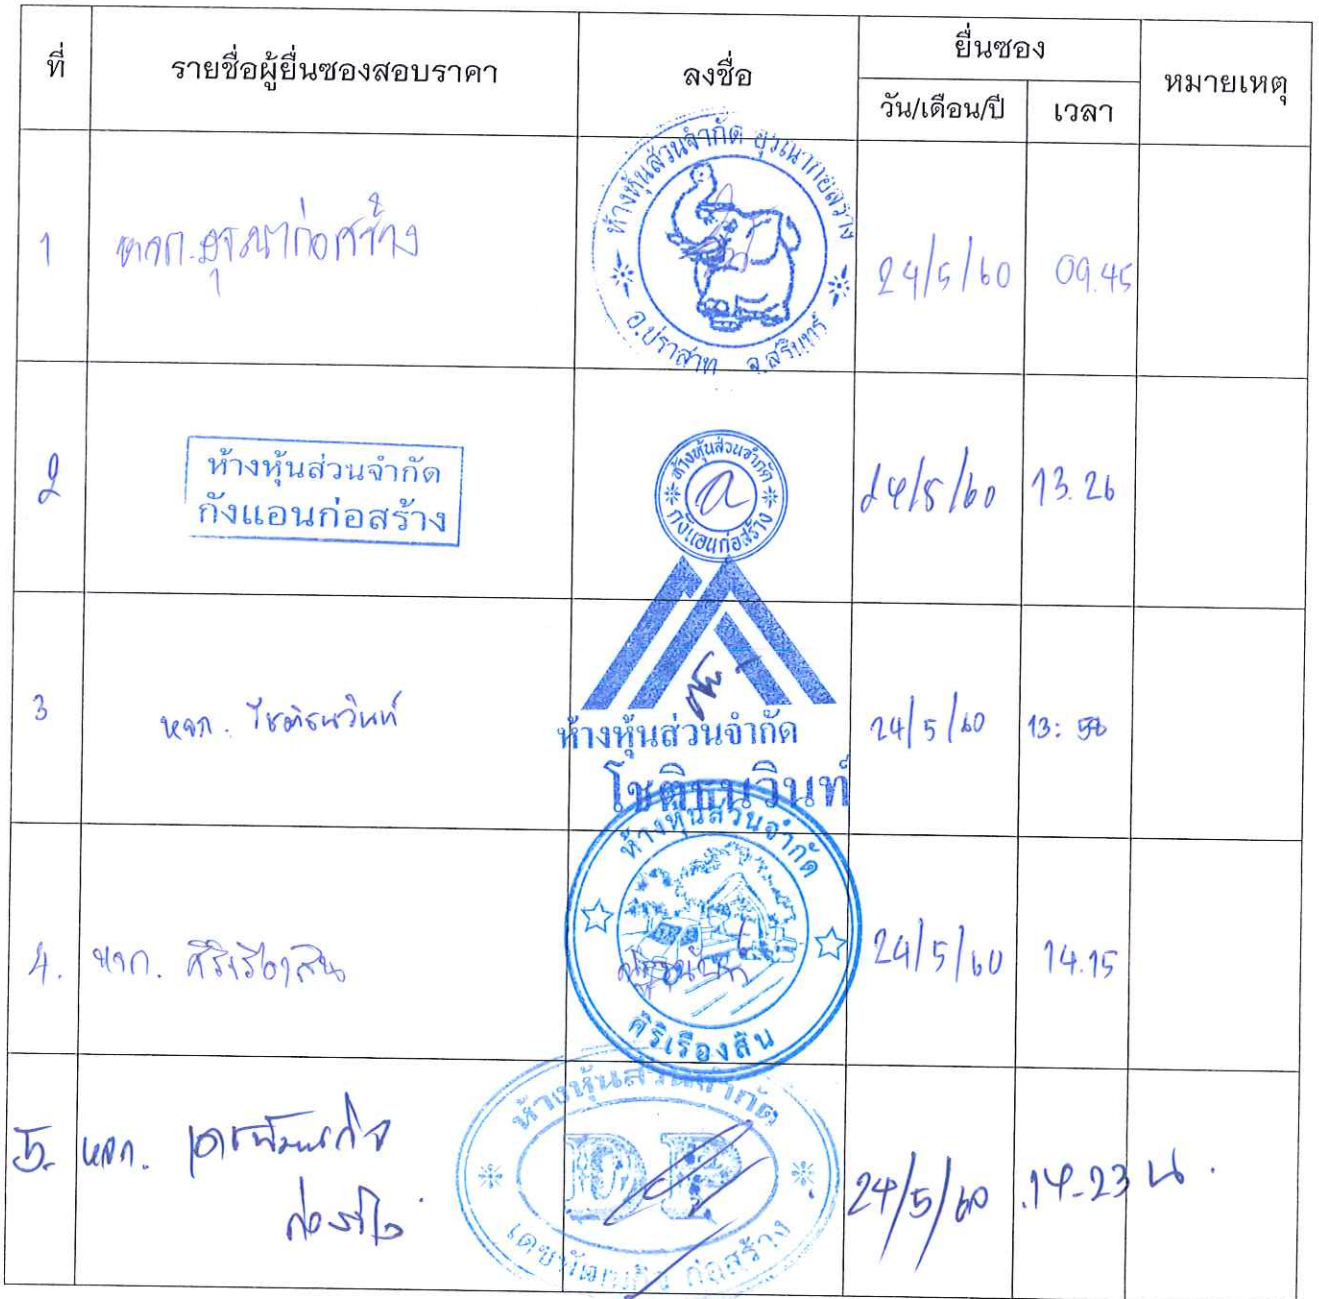 ที่
รายชื่อผู้ยื่นซองสอบราคา
ลงชื่อ
ยื่นซอง
หมายเหตุ
วัน/เดือน/ปี
เวลา
1
หจก.
ก่อสร้าง
ห้างหุ้นส่วนจำกัด
อ.ปราสาท จ.สุรินทร์
24/5/60
09.45
2
ห้างหุ้นส่วนจำกัด
กังแอนก่อสร้าง
ห้างหุ้นส่วนจำกัด
กังแอนก่อสร้าง
24/5/60
13.26
3
หจก. โชติธนวินท์
ห้างหุ้นส่วนจำกัด
โชติธนวินท์
24/5/60
13:58
4. หจก. ศิริเรืองสิน
ห้างหุ้นส่วนจำกัด
ศิริเรืองสิน
24/5/60
14.15
5. หจก.
ห้างหุ้นส่วนจำกัด
DP
ก่อสร้าง
24/5/60
14-23 น.